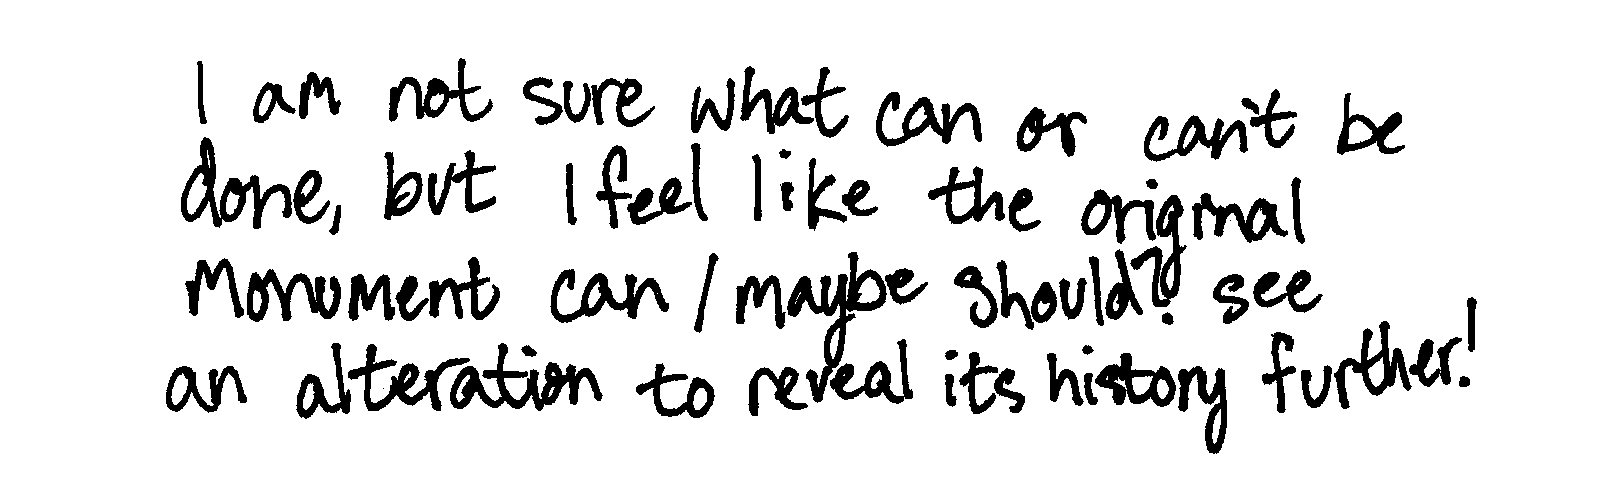 I am not sure what can or can't be
done, but I feel like the original
Monument can / maybe should? see
an alteration to reveal its history further!